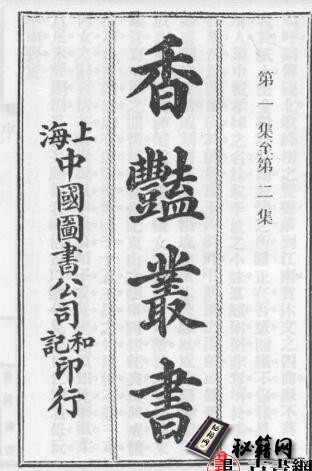 第一集至第二集
香豔叢書
上海中國圖書公司和記印行
秘籍网